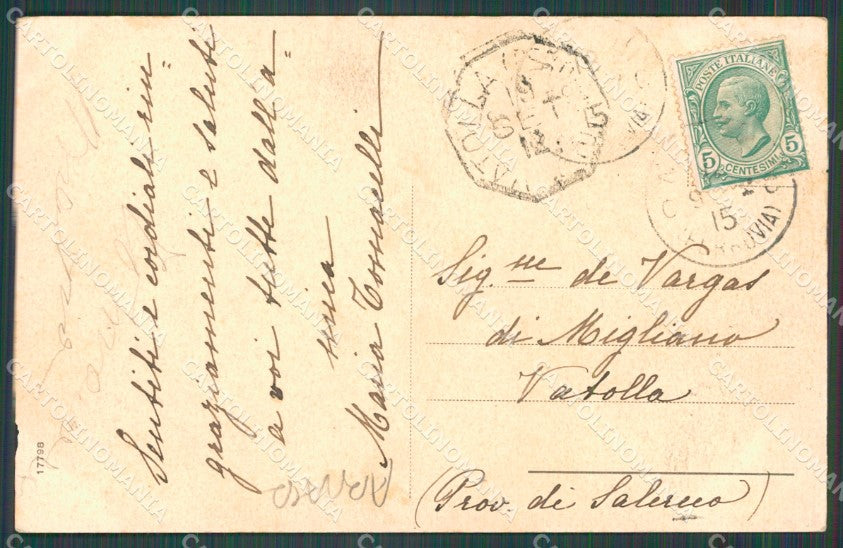 Sentiti e cordiali rin=
graziamenti e saluti
a voi tutte dalla
mia
Maria Tomacelli
Sig.ne de Vargas
di Migliano
Vatolla
(Prov. di Salerno)
POSTE ITALIANE
5 5
CENTESIMI
VATOLLA
15
17798
CARTOLINOMANIA